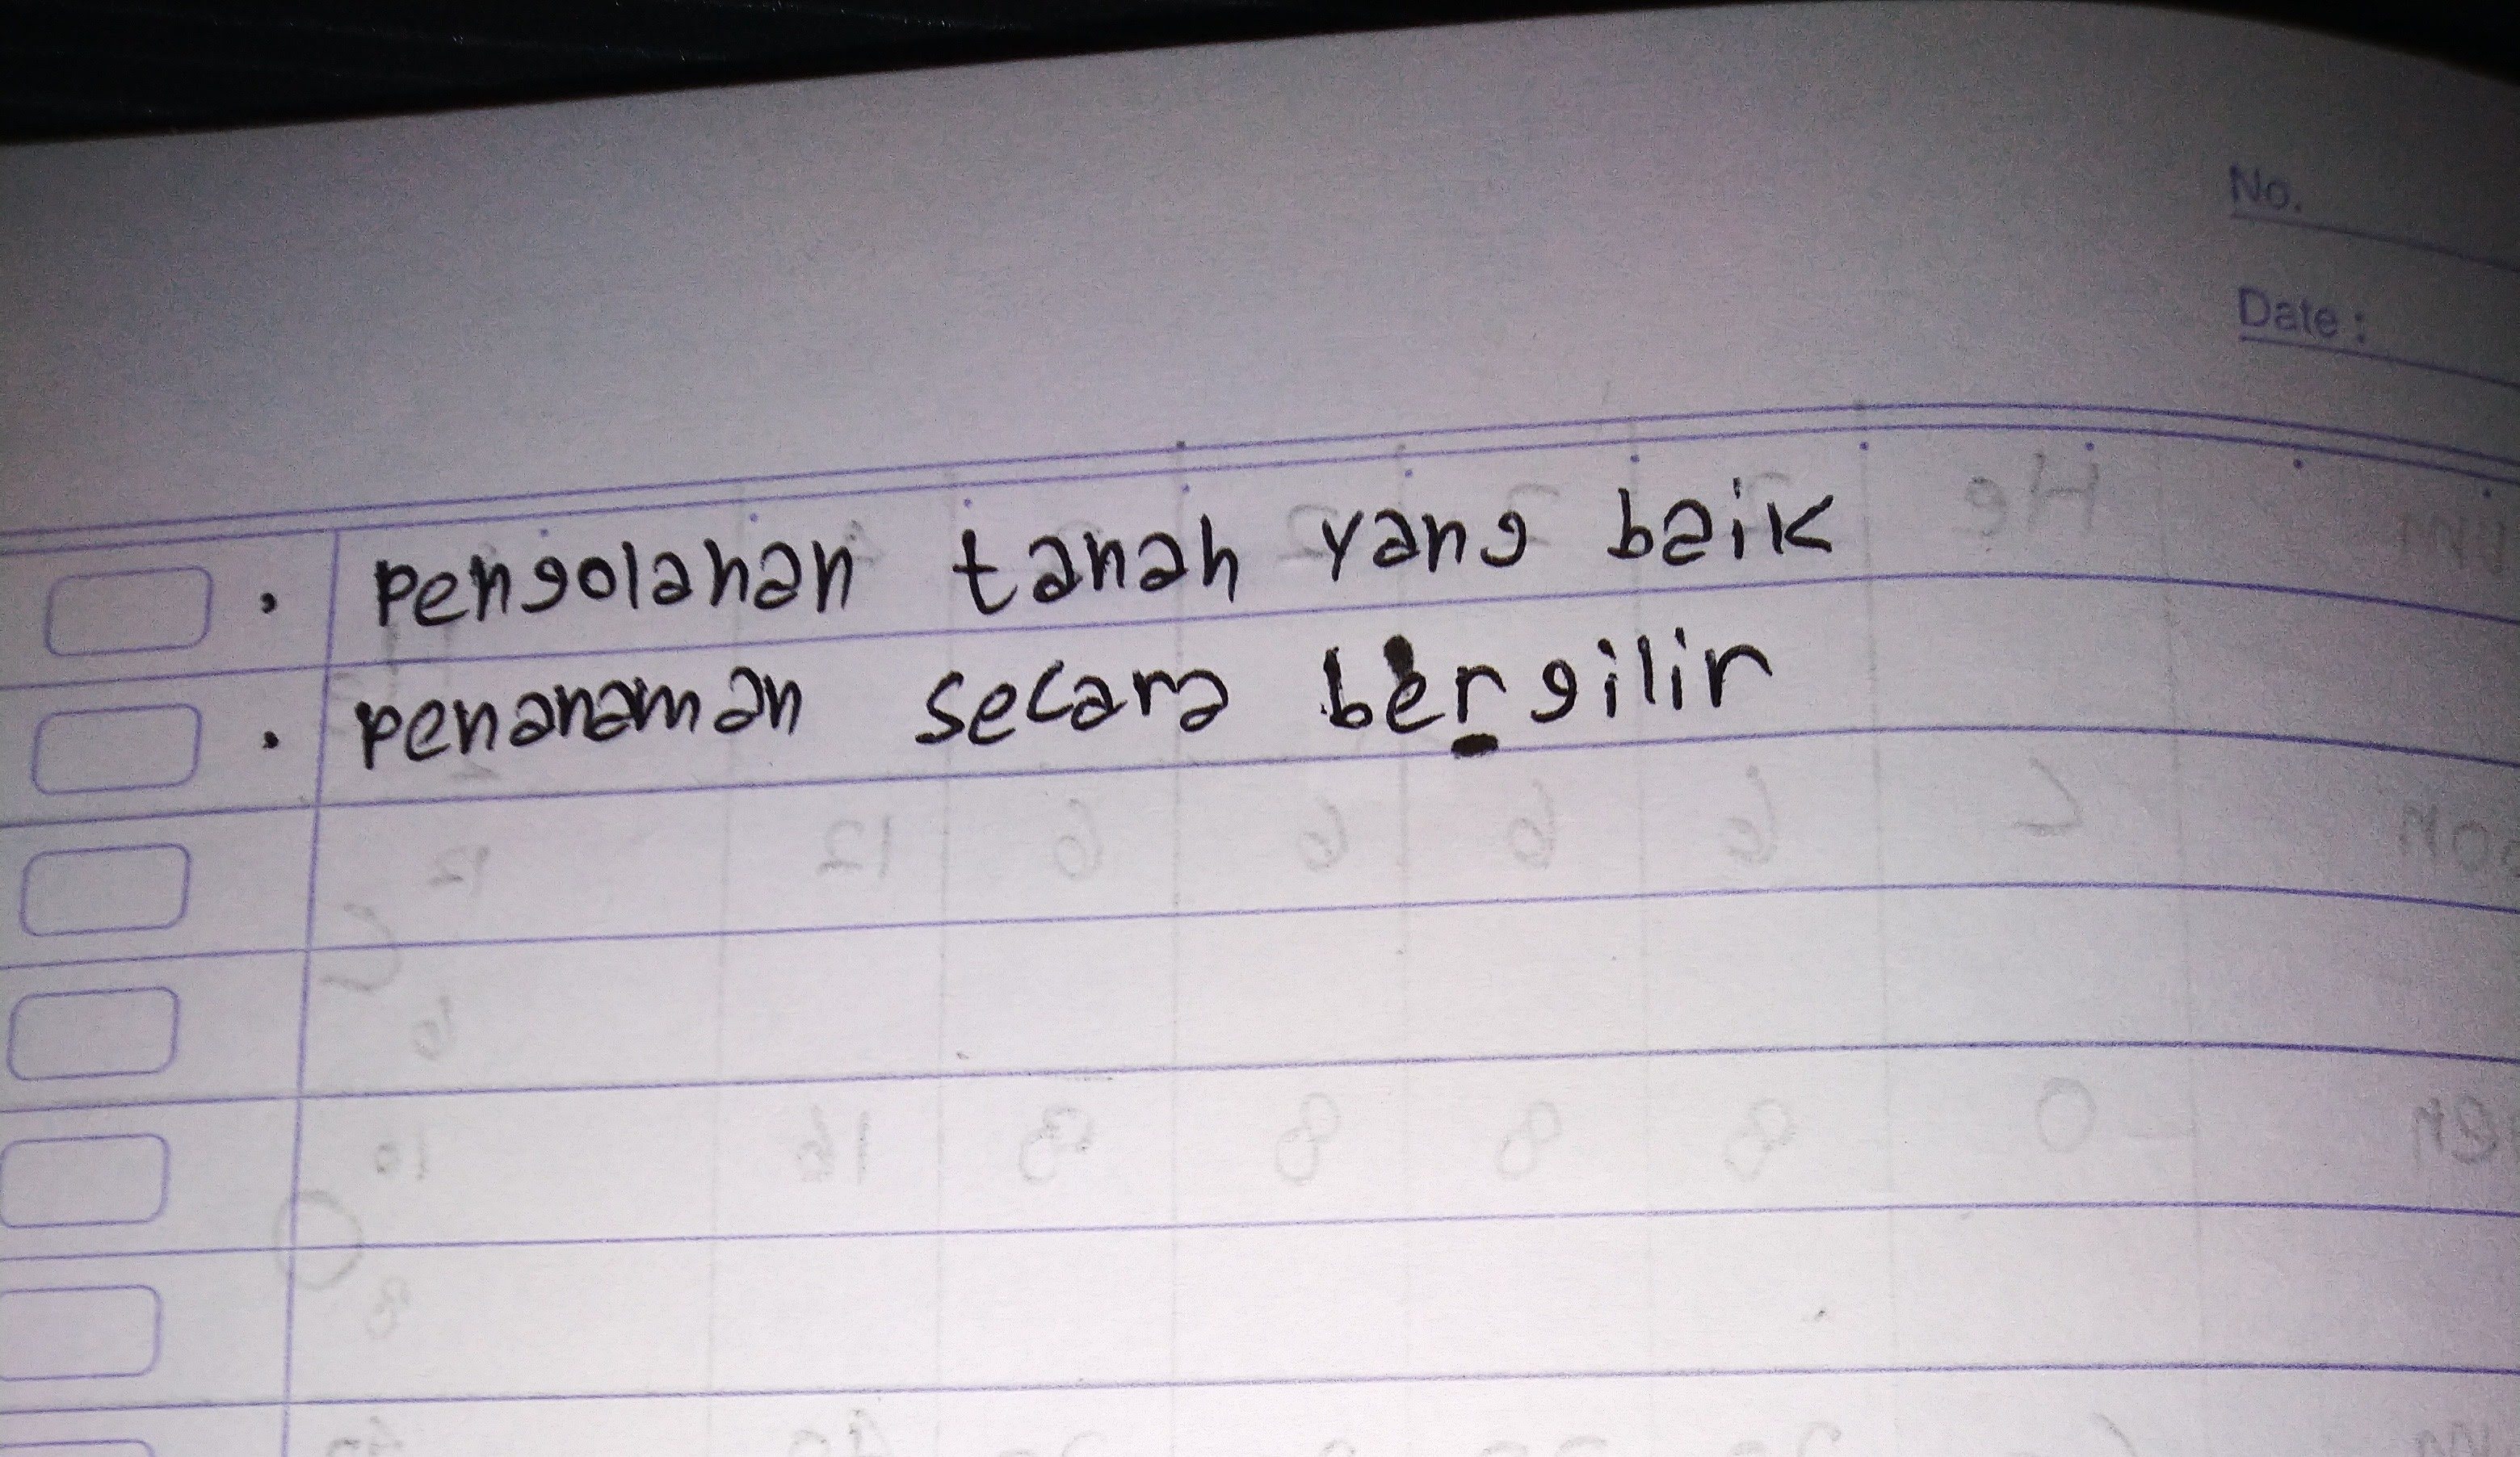 No.
Date :
• Pengolahan tanah yang baik
• Penanaman secara bergilir